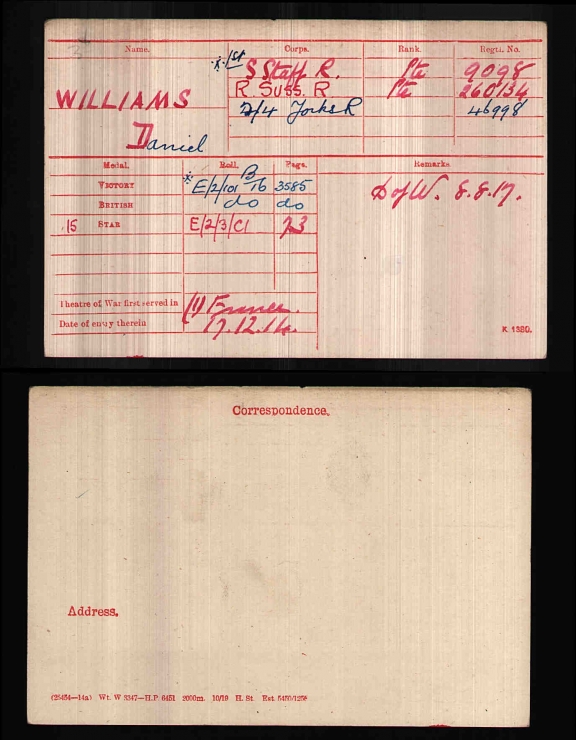 Name. Corps. Rank. Regtl. No.
* 1st S Staff R. Pte 9098
WILLIAMS R. Suss. R Pte 260134
2/4 Yorks R 46998
Daniel
Medal. Roll. Page. Remarks.
VICTORY * E/2/101 B 16 3585 D of W. 8.8.17.
BRITISH do do
15 STAR E/2/3/C1 73
Theatre of War first served in (1) France.
Date of entry therein 17.12.14.
K 1380.
Correspondence.
Address.
(26454—14a) Wt. W 3347—H.P. 6451 2000m. 10/19 H. St.